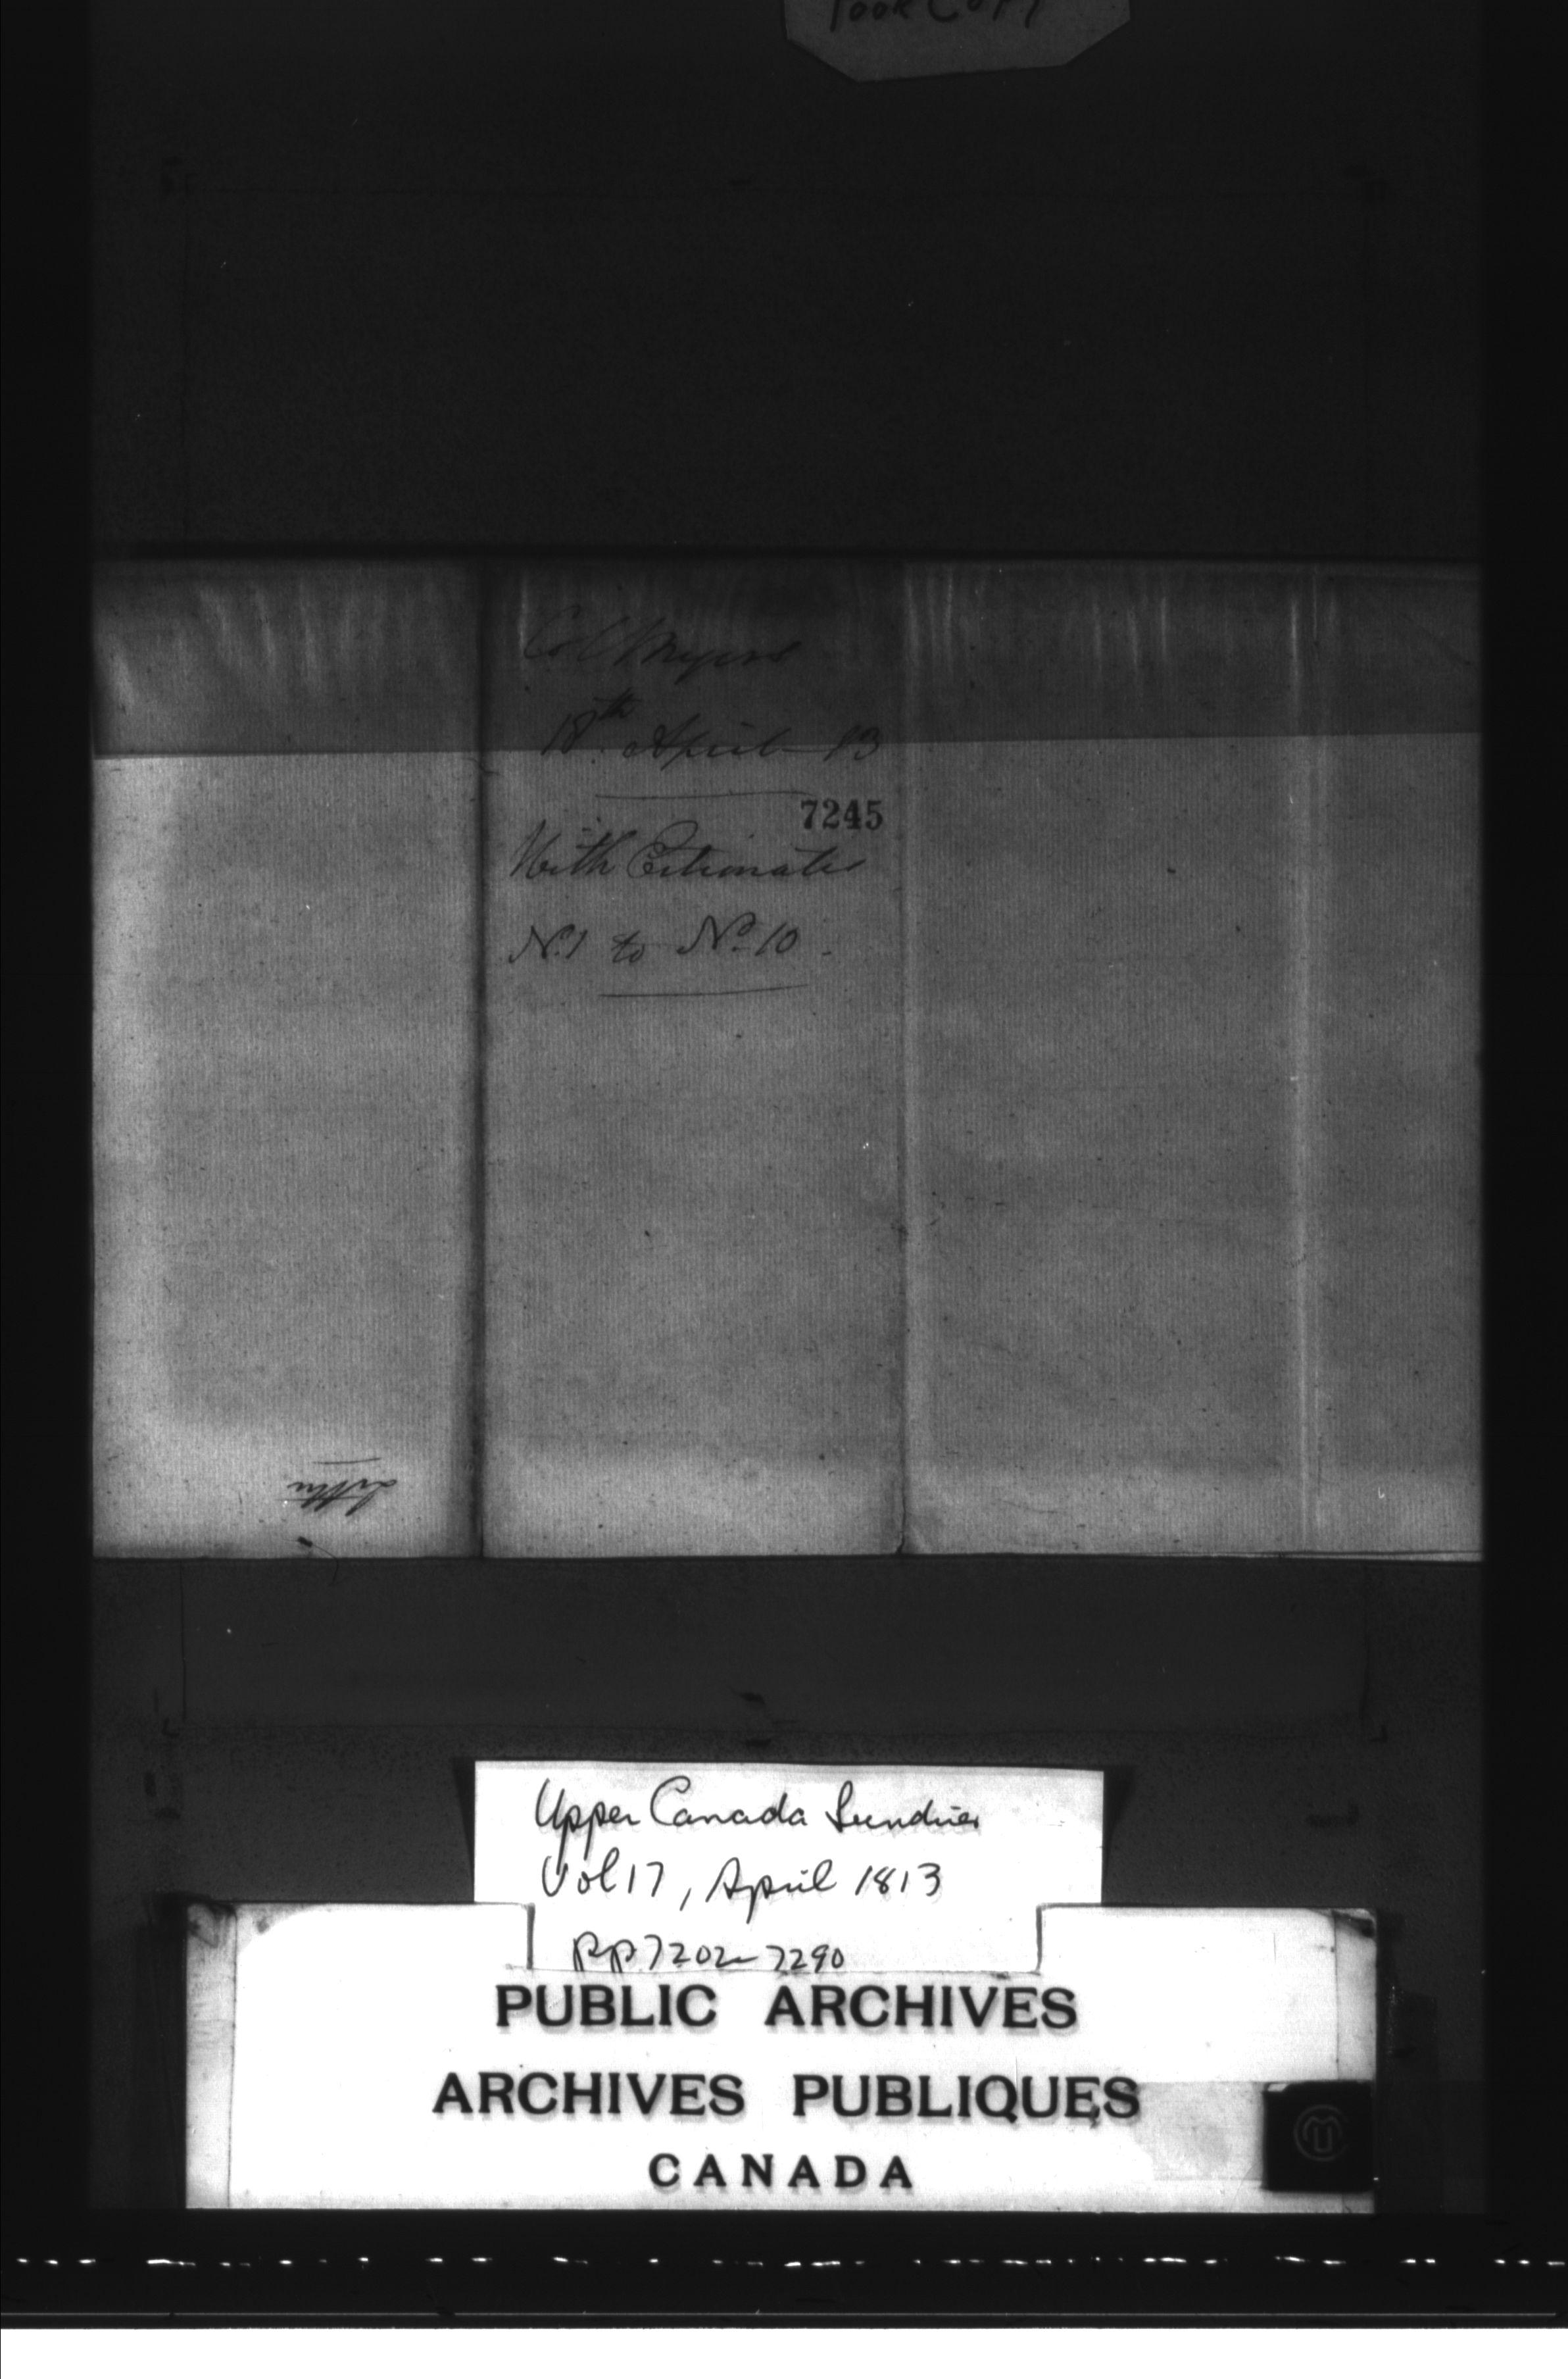 POOR COPY
Coll Myers
18th April 13
7245
With Estimates
No. 1 to No. 10.
Upper Canada Sundries
Vol 17, April 1813
pp 7202-7290
PUBLIC ARCHIVES
ARCHIVES PUBLIQUES
CANADA